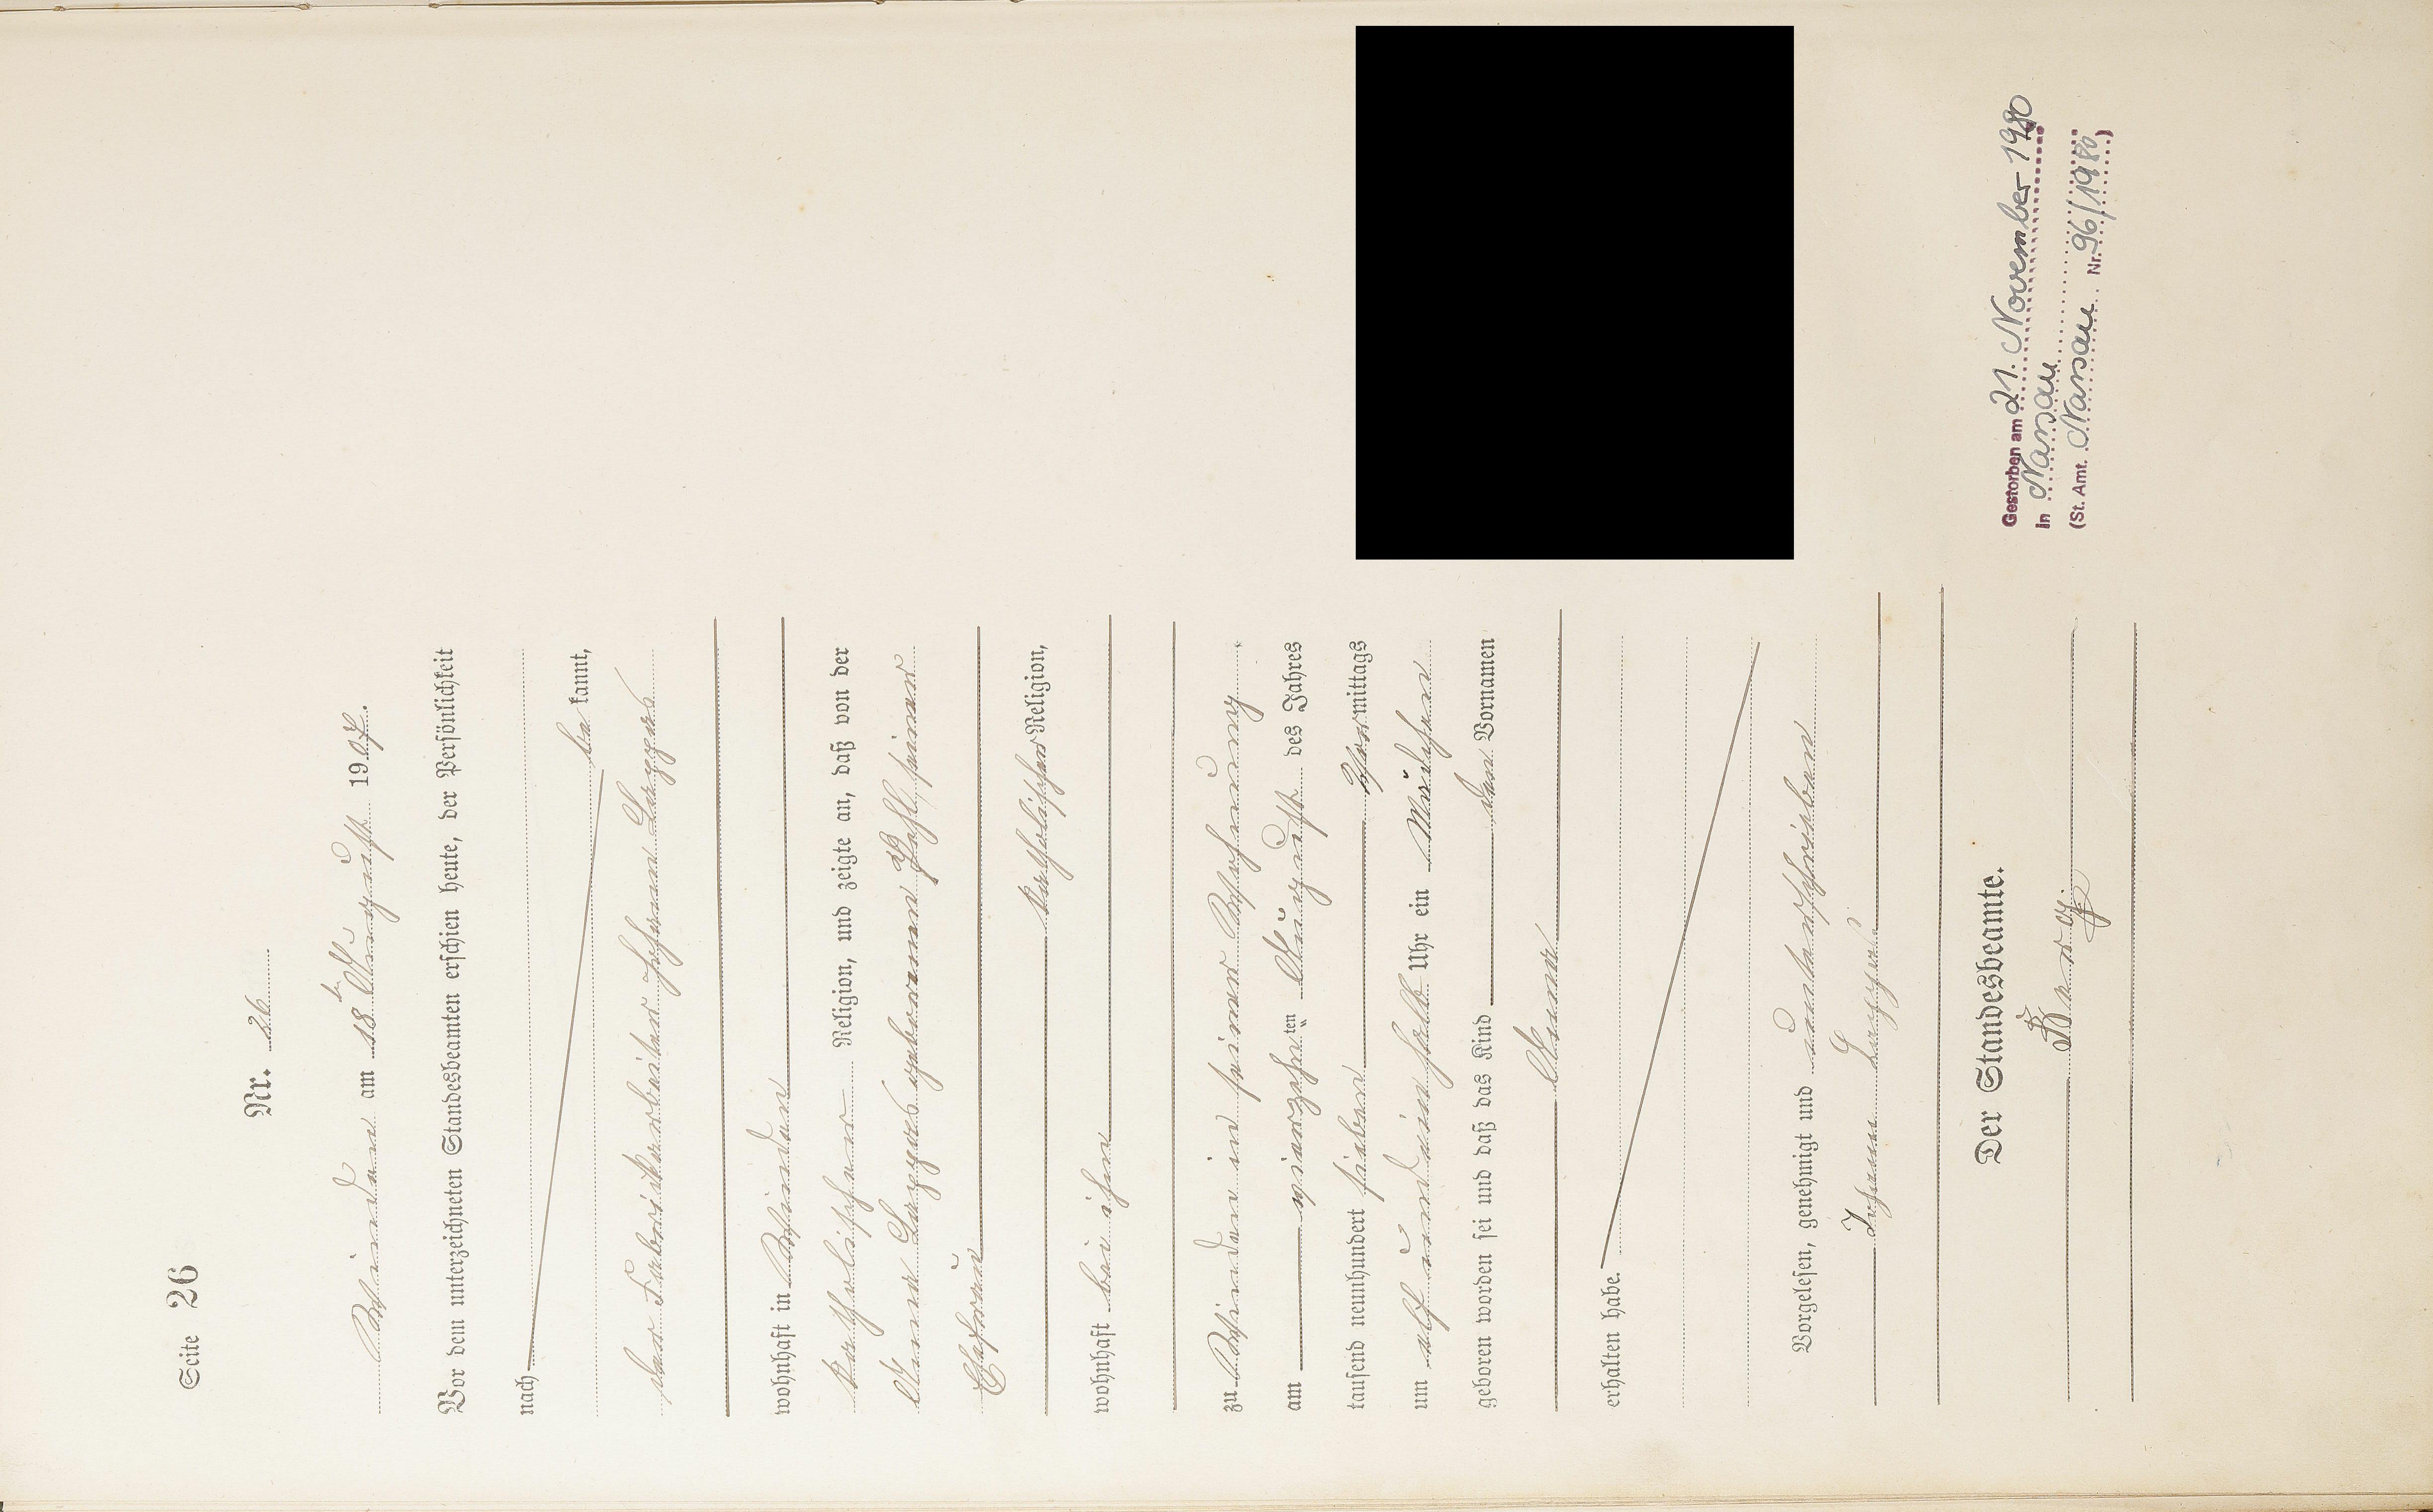 Seite 26
Nr. 26
Winden am 18ten August 1907.
Vor dem unterzeichneten Standesbeamten erschien heute, der Persönlichkeit
nach
be kannt,
der Fabrikarbeiter Johann
wohnhaft in Winden
katholischer Religion, und zeigte an, daß von der
Anna geborenen Pehl, seiner
Ehefrau
katholischer Religion,
wohnhaft bei ihm
zu Winden in seiner Wohnung
am vierzehnten August des Jahres
tausend neunhundert sieben Vormittags
um elf und ein halb Uhr ein Mädchen
geboren worden sei und daß das Kind den Vornamen
Anna
erhalten habe.
Vorgelesen, genehmigt und unterschrieben
Johann
Der Standesbeamte.
Gestorben am 21. November 1980
in Nassau
(St. Amt. Nassau Nr. 96/1980)